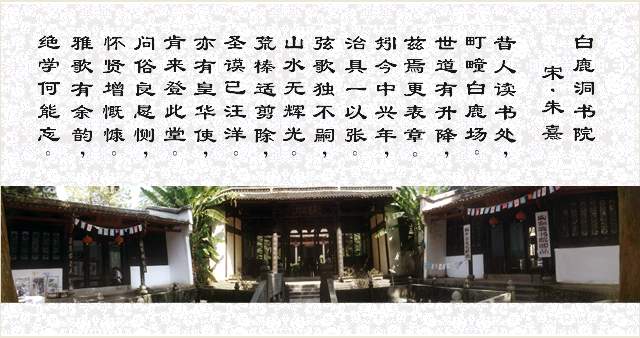 白鹿洞书院
宋·朱熹
昔人读书处，
町疃白鹿场。
世道有升降，
兹焉更表章。
矧今中兴年，
治具一以张。
弦歌独不嗣，
山水无辉光。
荒榛适剪除，
圣谟已汪洋。
亦有皇华使，
肯来登此堂。
问俗良恳恻，
怀贤增慨慷。
雅歌有余韵，
绝学何能忘。